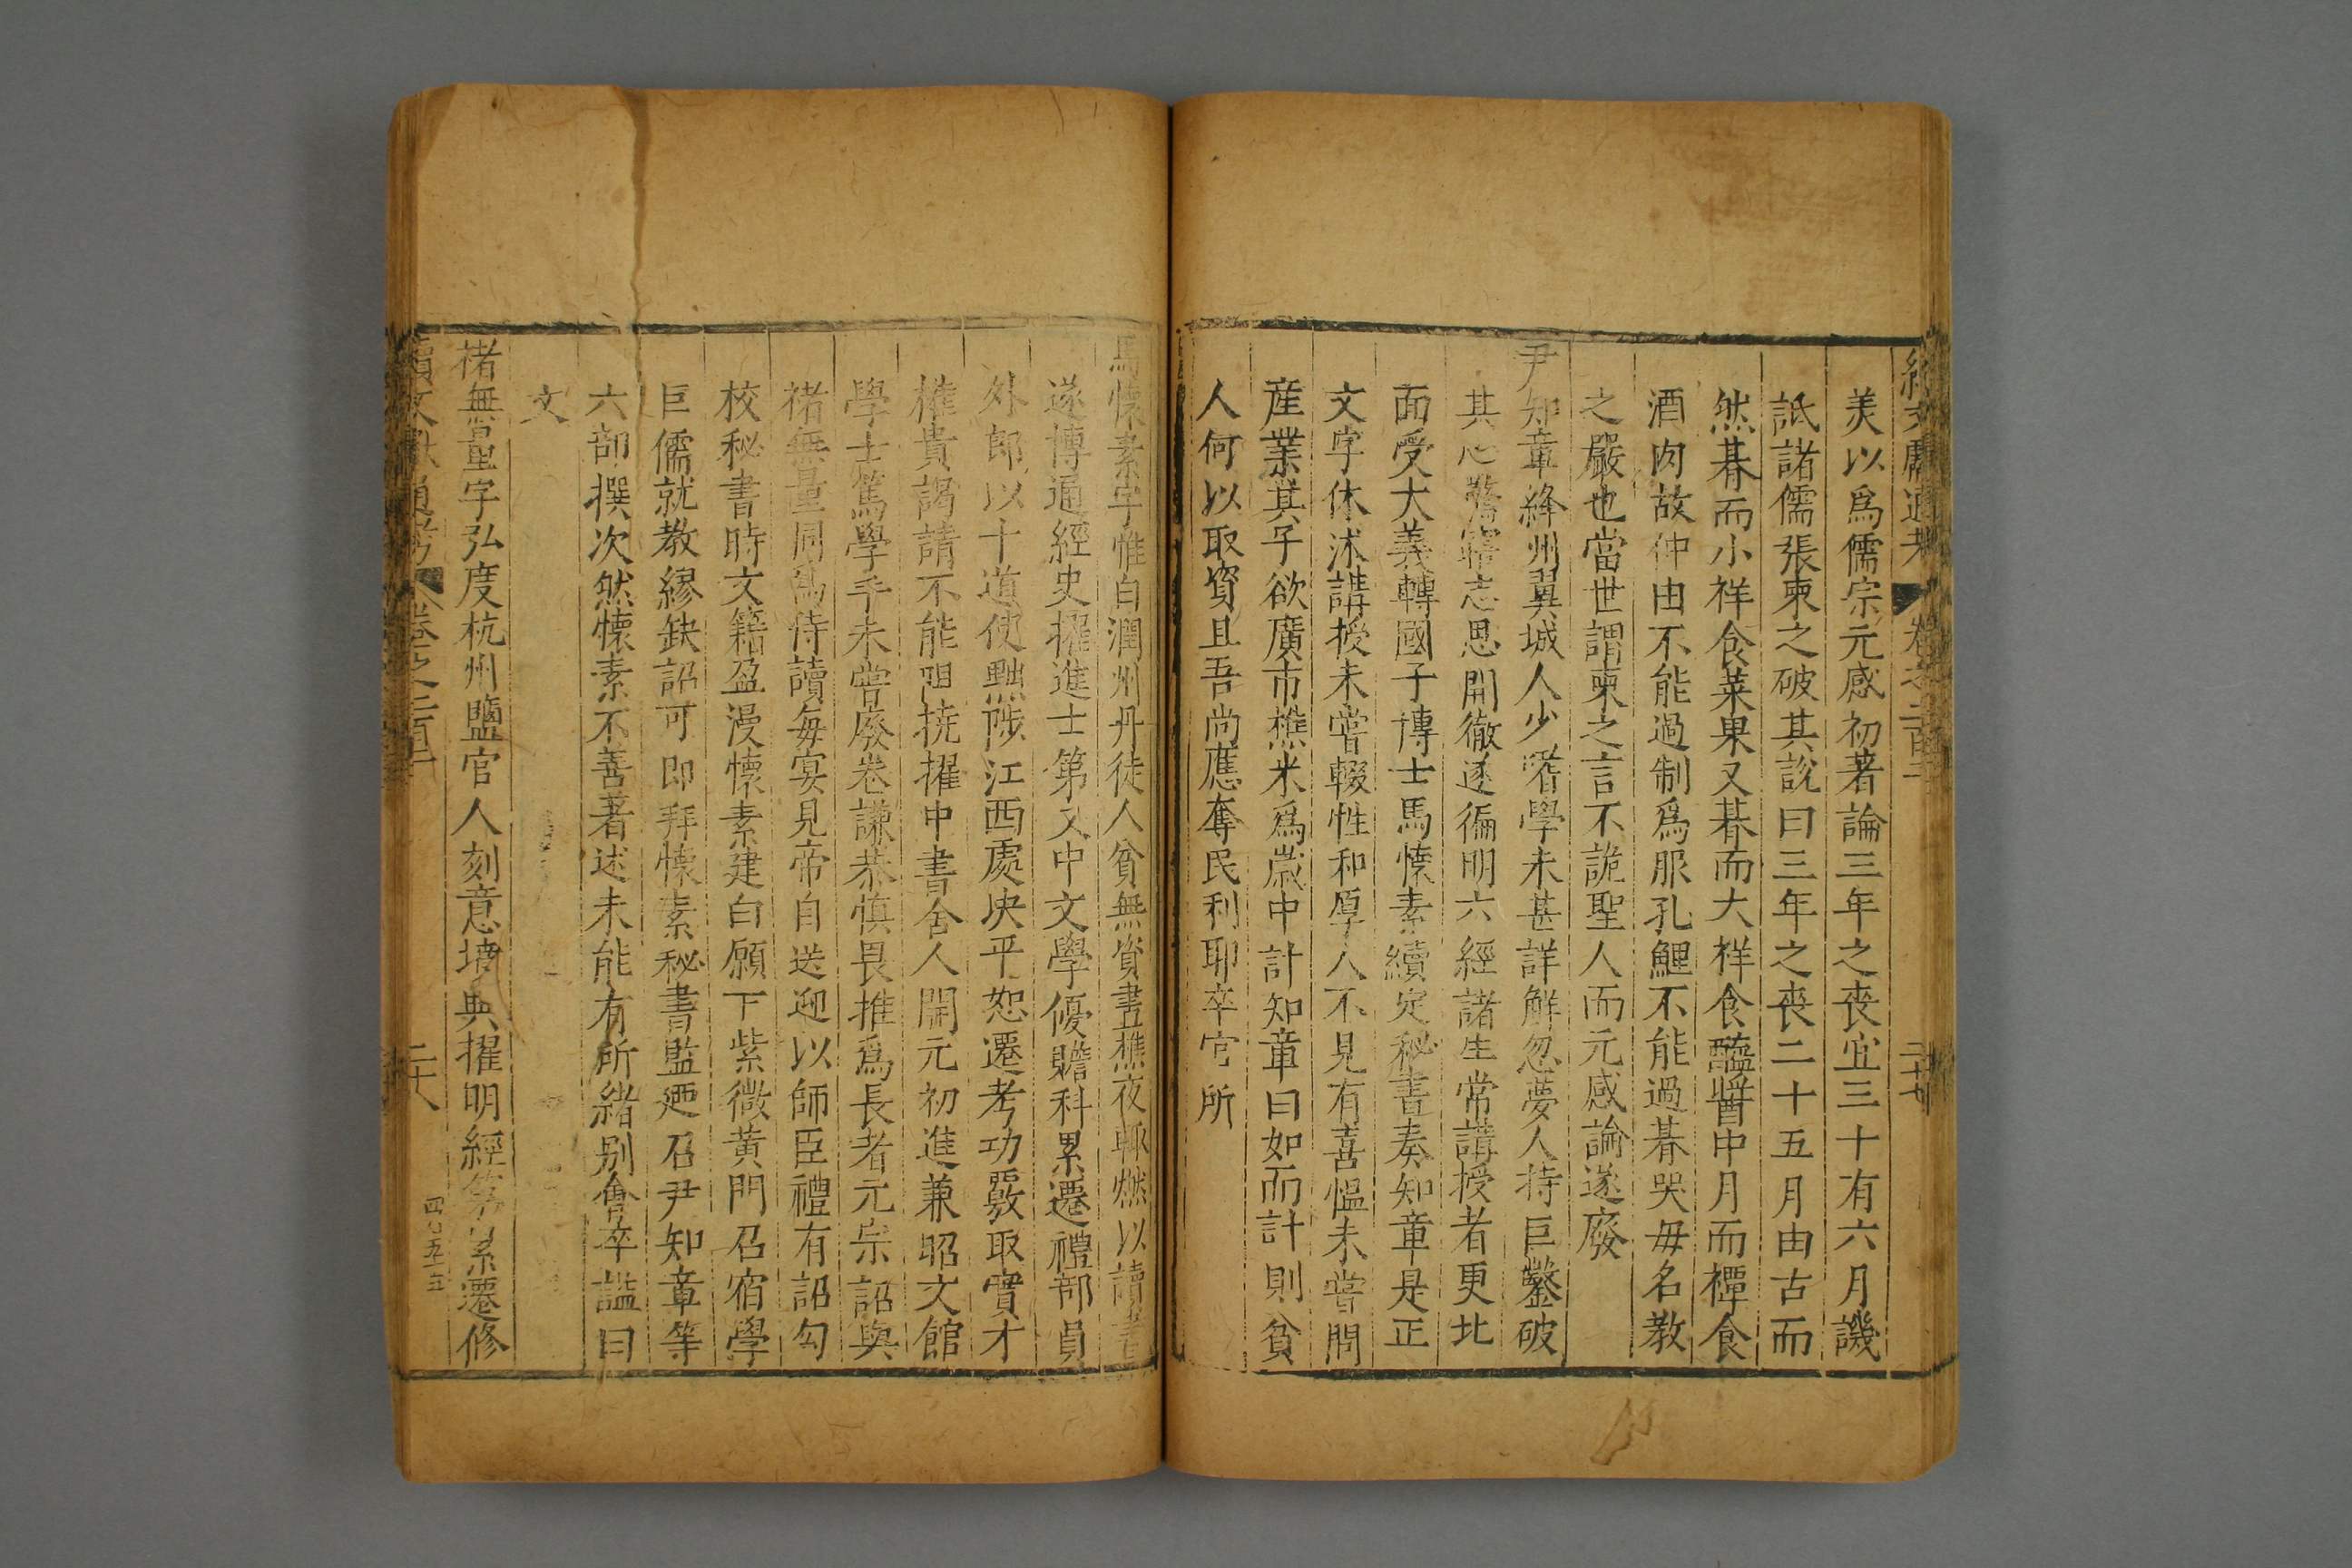 續文獻通考 卷之二百二 二十七
羙以爲儒宗元感初著論三年之喪宜三十有六月譏
詆諸儒張柬之破其說曰三年之喪二十五月由古而
然朞而小祥食菜果又朞而大祥食醯醬中月而禫食
酒肉故仲由不能過制爲服孔鯉不能過朞哭毋名教
之嚴也當世謂柬之言不詭聖人而元感論遂廢
尹知章絳州翼城人少嗜學未甚詳解忽夢人持巨鑿破
其心驚寤志思開徹遂徧明六經諸生常講授者更北
面受大義轉國子博士馬懷素續定秘書奏知章是正
文字休沐講授未嘗輟性和厚人不見有喜愠未嘗問
産業其子欲廣市樵米爲歲中計知章曰如而計則貧
人何以取資且吾尚應奪民利耶卒官所
馬懷素字惟白潤州丹徒人貧無資晝樵夜輒燃以讀書
遂博通經史擢進士第又中文學優贍科累遷禮部員
外郎以十道使黜陟江西處决平恕遷考功覈取實才
權貴謁請不能阻撓擢中書舍人開元初進兼昭文館
學士篤學手未嘗廢卷謙恭慎畏推爲長者元宗詔與
禇無量同爲侍讀每宴見帝自送迎以師臣禮有詔勾
校秘書時文籍盈漫懷素建白願下紫微黄門召宿學
巨儒就教繆缺詔可即拜懷素秘書監廼召尹知章等
六部撰次然懷素不善著述未能有所緒别會卒謚曰
文
禇無量字弘度杭州鹽官人刻意墳典擢明經第累遷修
續文獻通考 卷之二百二 二十八